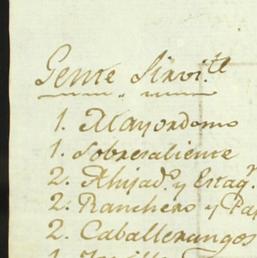 Gente Sirvi.te
1. Mayordomo
1. Sobresaliente
2. Ahijad.s y Estaq.r
2. Ranchero y Pa
2. Caballerangos